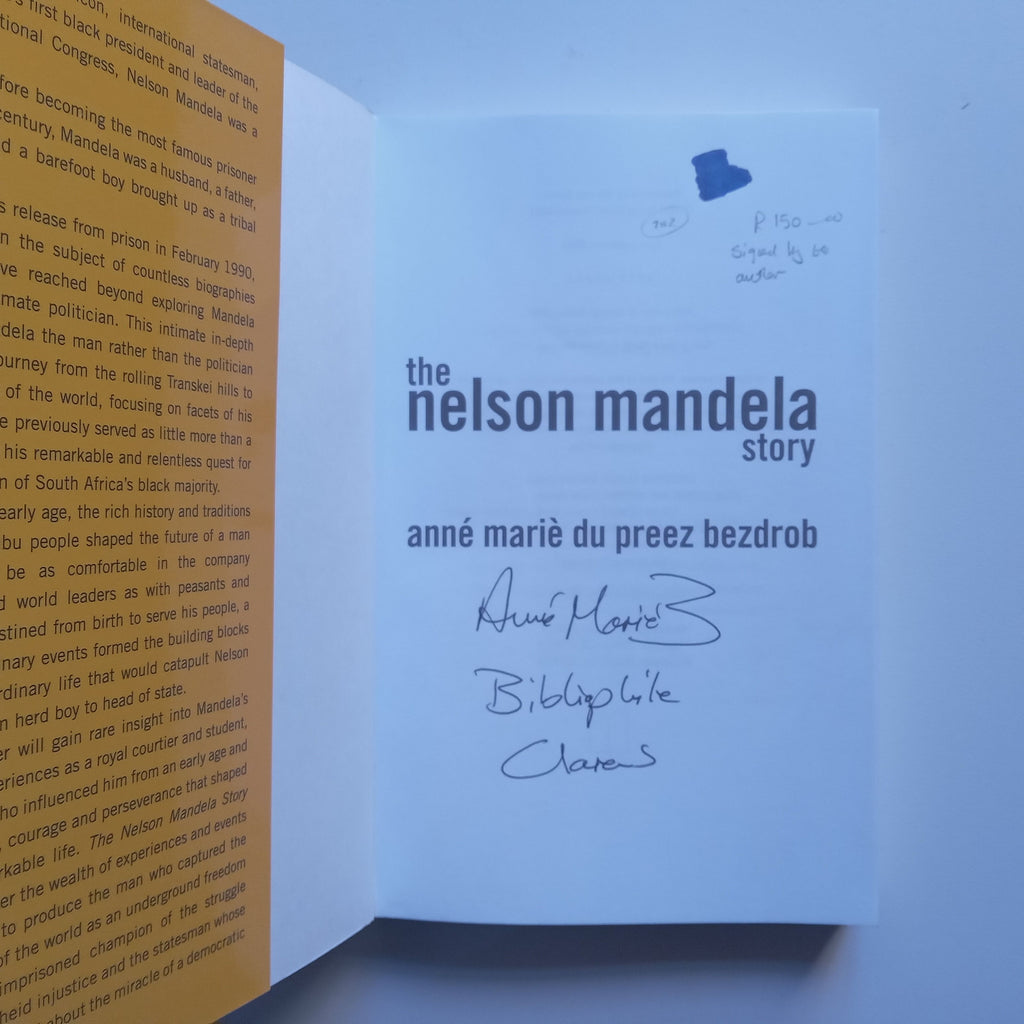 icon, international statesman,
s first black president and leader of the
tional Congress, Nelson Mandela was a
fore becoming the most famous prisoner
century, Mandela was a husband, a father,
d a barefoot boy brought up as a tribal
s release from prison in February 1990,
n the subject of countless biographies
ve reached beyond exploring Mandela
mate politician. This intimate in-depth
dela the man rather than the politician
ourney from the rolling Transkei hills to
of the world, focusing on facets of his
e previously served as little more than a
his remarkable and relentless quest for
n of South Africa's black majority.
early age, the rich history and traditions
bu people shaped the future of a man
be as comfortable in the company
d world leaders as with peasants and
stined from birth to serve his people, a
nary events formed the building blocks
rdinary life that would catapult Nelson
n herd boy to head of state.
er will gain rare insight into Mandela's
eriences as a royal courtier and student,
ho influenced him from an early age and
, courage and perseverance that shaped
rkable life. The Nelson Mandela Story
er the wealth of experiences and events
to produce the man who captured the
of the world as an underground freedom
imprisoned champion of the struggle
heid injustice and the statesman whose
about the miracle of a democratic
R150-00
Signed by
author
the
nelson mandela
story
anné mariè du preez bezdrob
Anné Mariè B
Bibliophile
Clarens